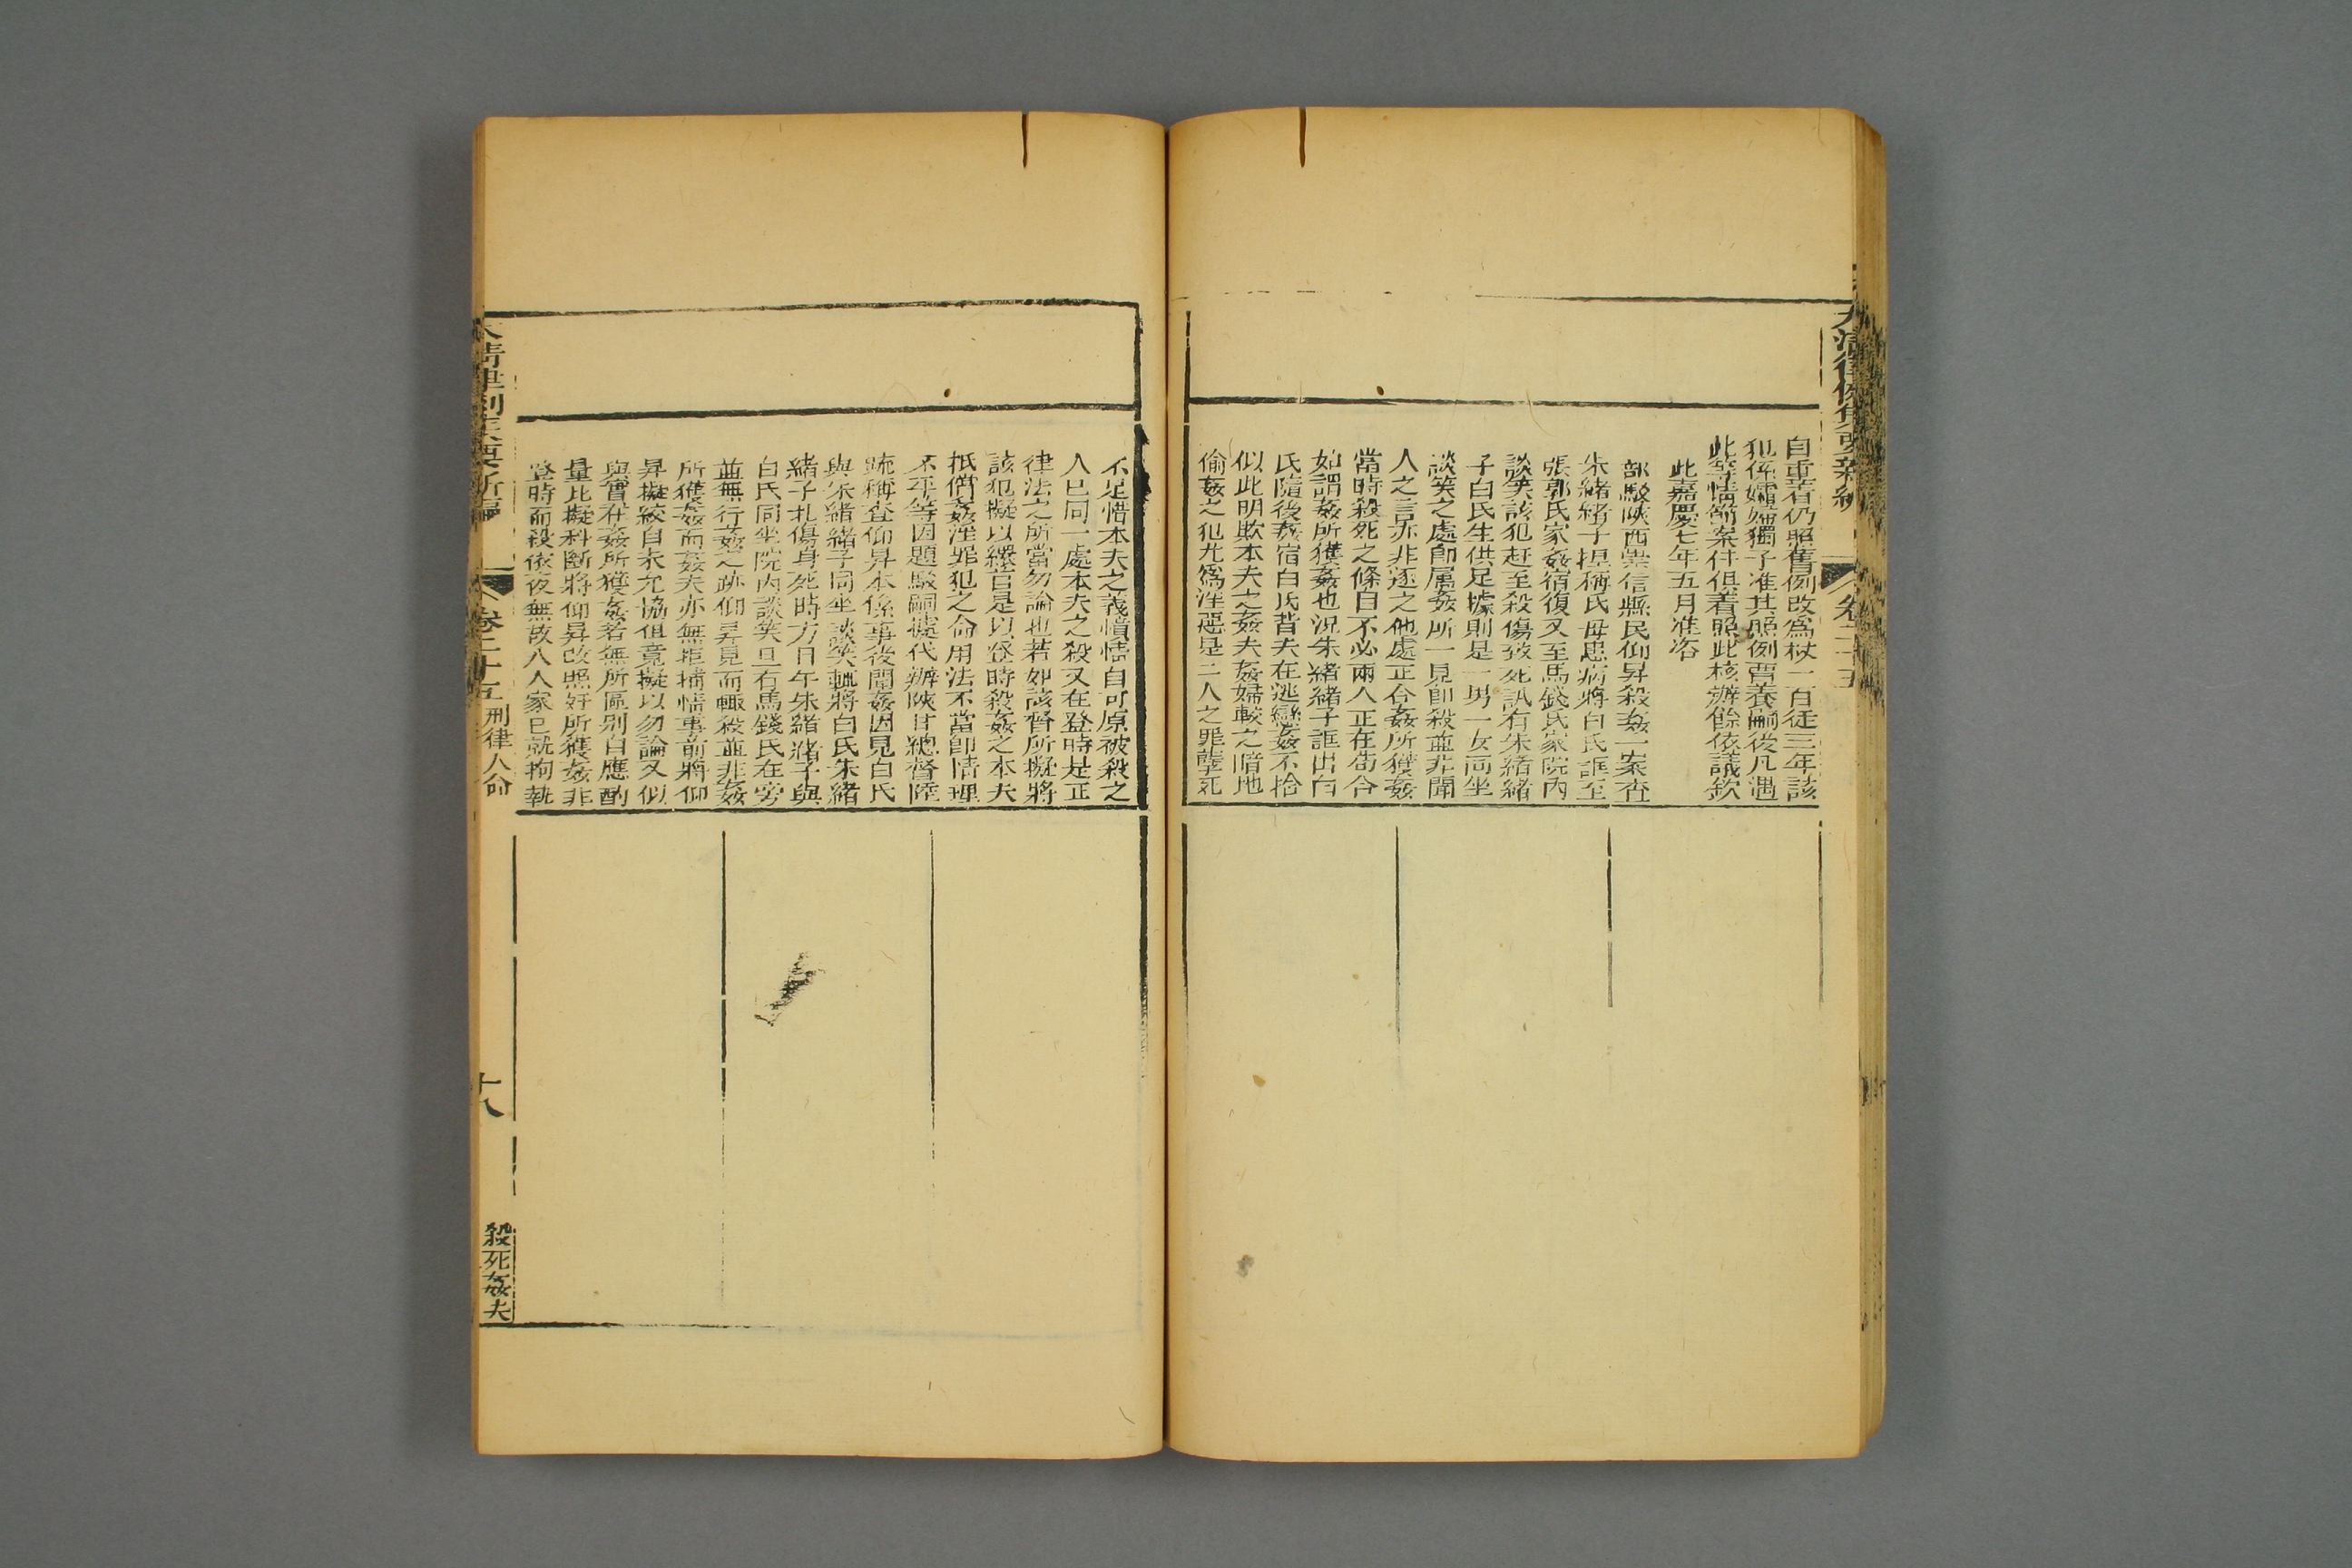 大清律例集要新編
卷二十五
自重者仍照舊例改為杖一百徒三年該
犯係孀婦獨子准其照例留養嗣後凡遇
此等情節案件俱着照此核辦餘依議欽
此嘉慶七年五月准咨
部駁陝西崇信縣民仰昇殺姦一案查
朱緒緒子捏稱氏母患病將白氏誆至
張郭氏家姦宿復又至馬錢氏家院內
談笑該犯赶至殺傷致死訊有朱緒緒
子白氏生供足據則是一男一女同坐
談笑之處即属姦所一見即殺並非聞
人之言亦非逐之他處正合姦所獲姦
當時殺死之條自不必兩人正在苟合
如謂姦所獲姦也況朱緒緒子誆出白
氏隨後姦宿白氏背夫在逃戀姦不捨
似此明欺本夫之姦夫姦婦較之暗地
偷姦之犯尤為淫惡是二人之罪孽死
不足惜本夫之義憤情自可原被殺之
人已同一處本夫之殺又在登時是正
律法之所當勿論也若如該督所擬將
該犯擬以繯首是以登時殺姦之本夫
抵償姦淫罪犯之命用法不當即情理
不平等因題駁嗣據代辦陝甘總督陸
疏稱查仰昇本係事後聞姦因見白氏
與朱緒緒子同坐談笑輒將白氏朱緒
緒子扎傷身死時方日午朱緒緒子與
白氏同坐院內談笑且有馬錢氏在旁
並無行姦之跡仰昇見而輒殺並非姦
所獲姦而姦夫亦無拒捕情事前將仰
昇擬絞自未允協但竟擬以勿論又似
與實在姦所獲姦者無所區别自應酌
量比擬科斷將仰昇改照好所獲姦非
登時而殺依夜無故入人家已就拘執
大清律例集要新編
卷二十五
刑律人命
十八
殺死姦夫